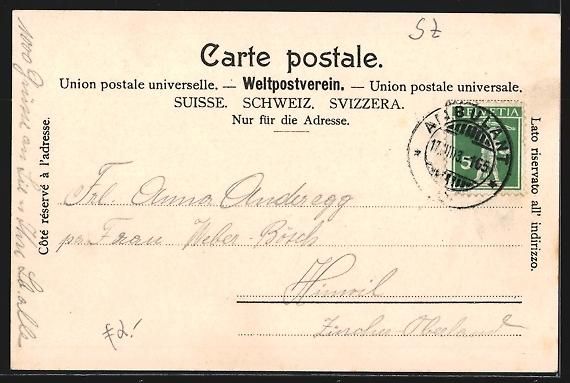 SZ
Carte postale.
Union postale universelle. — Weltpostverein. — Unione postale universale.
SUISSE. SCHWEIZ. SVIZZERA.
Nur für die Adresse.
Côté réservé à l'adresse.
Lato riservato all' indirizzo.
HELVETIA
5
AMBULANT
Frl. Anna Anderegg
pr. Frau Weber-Bösch
Hinwil
Zürcher Oberland
1000 Grüsse an Sie